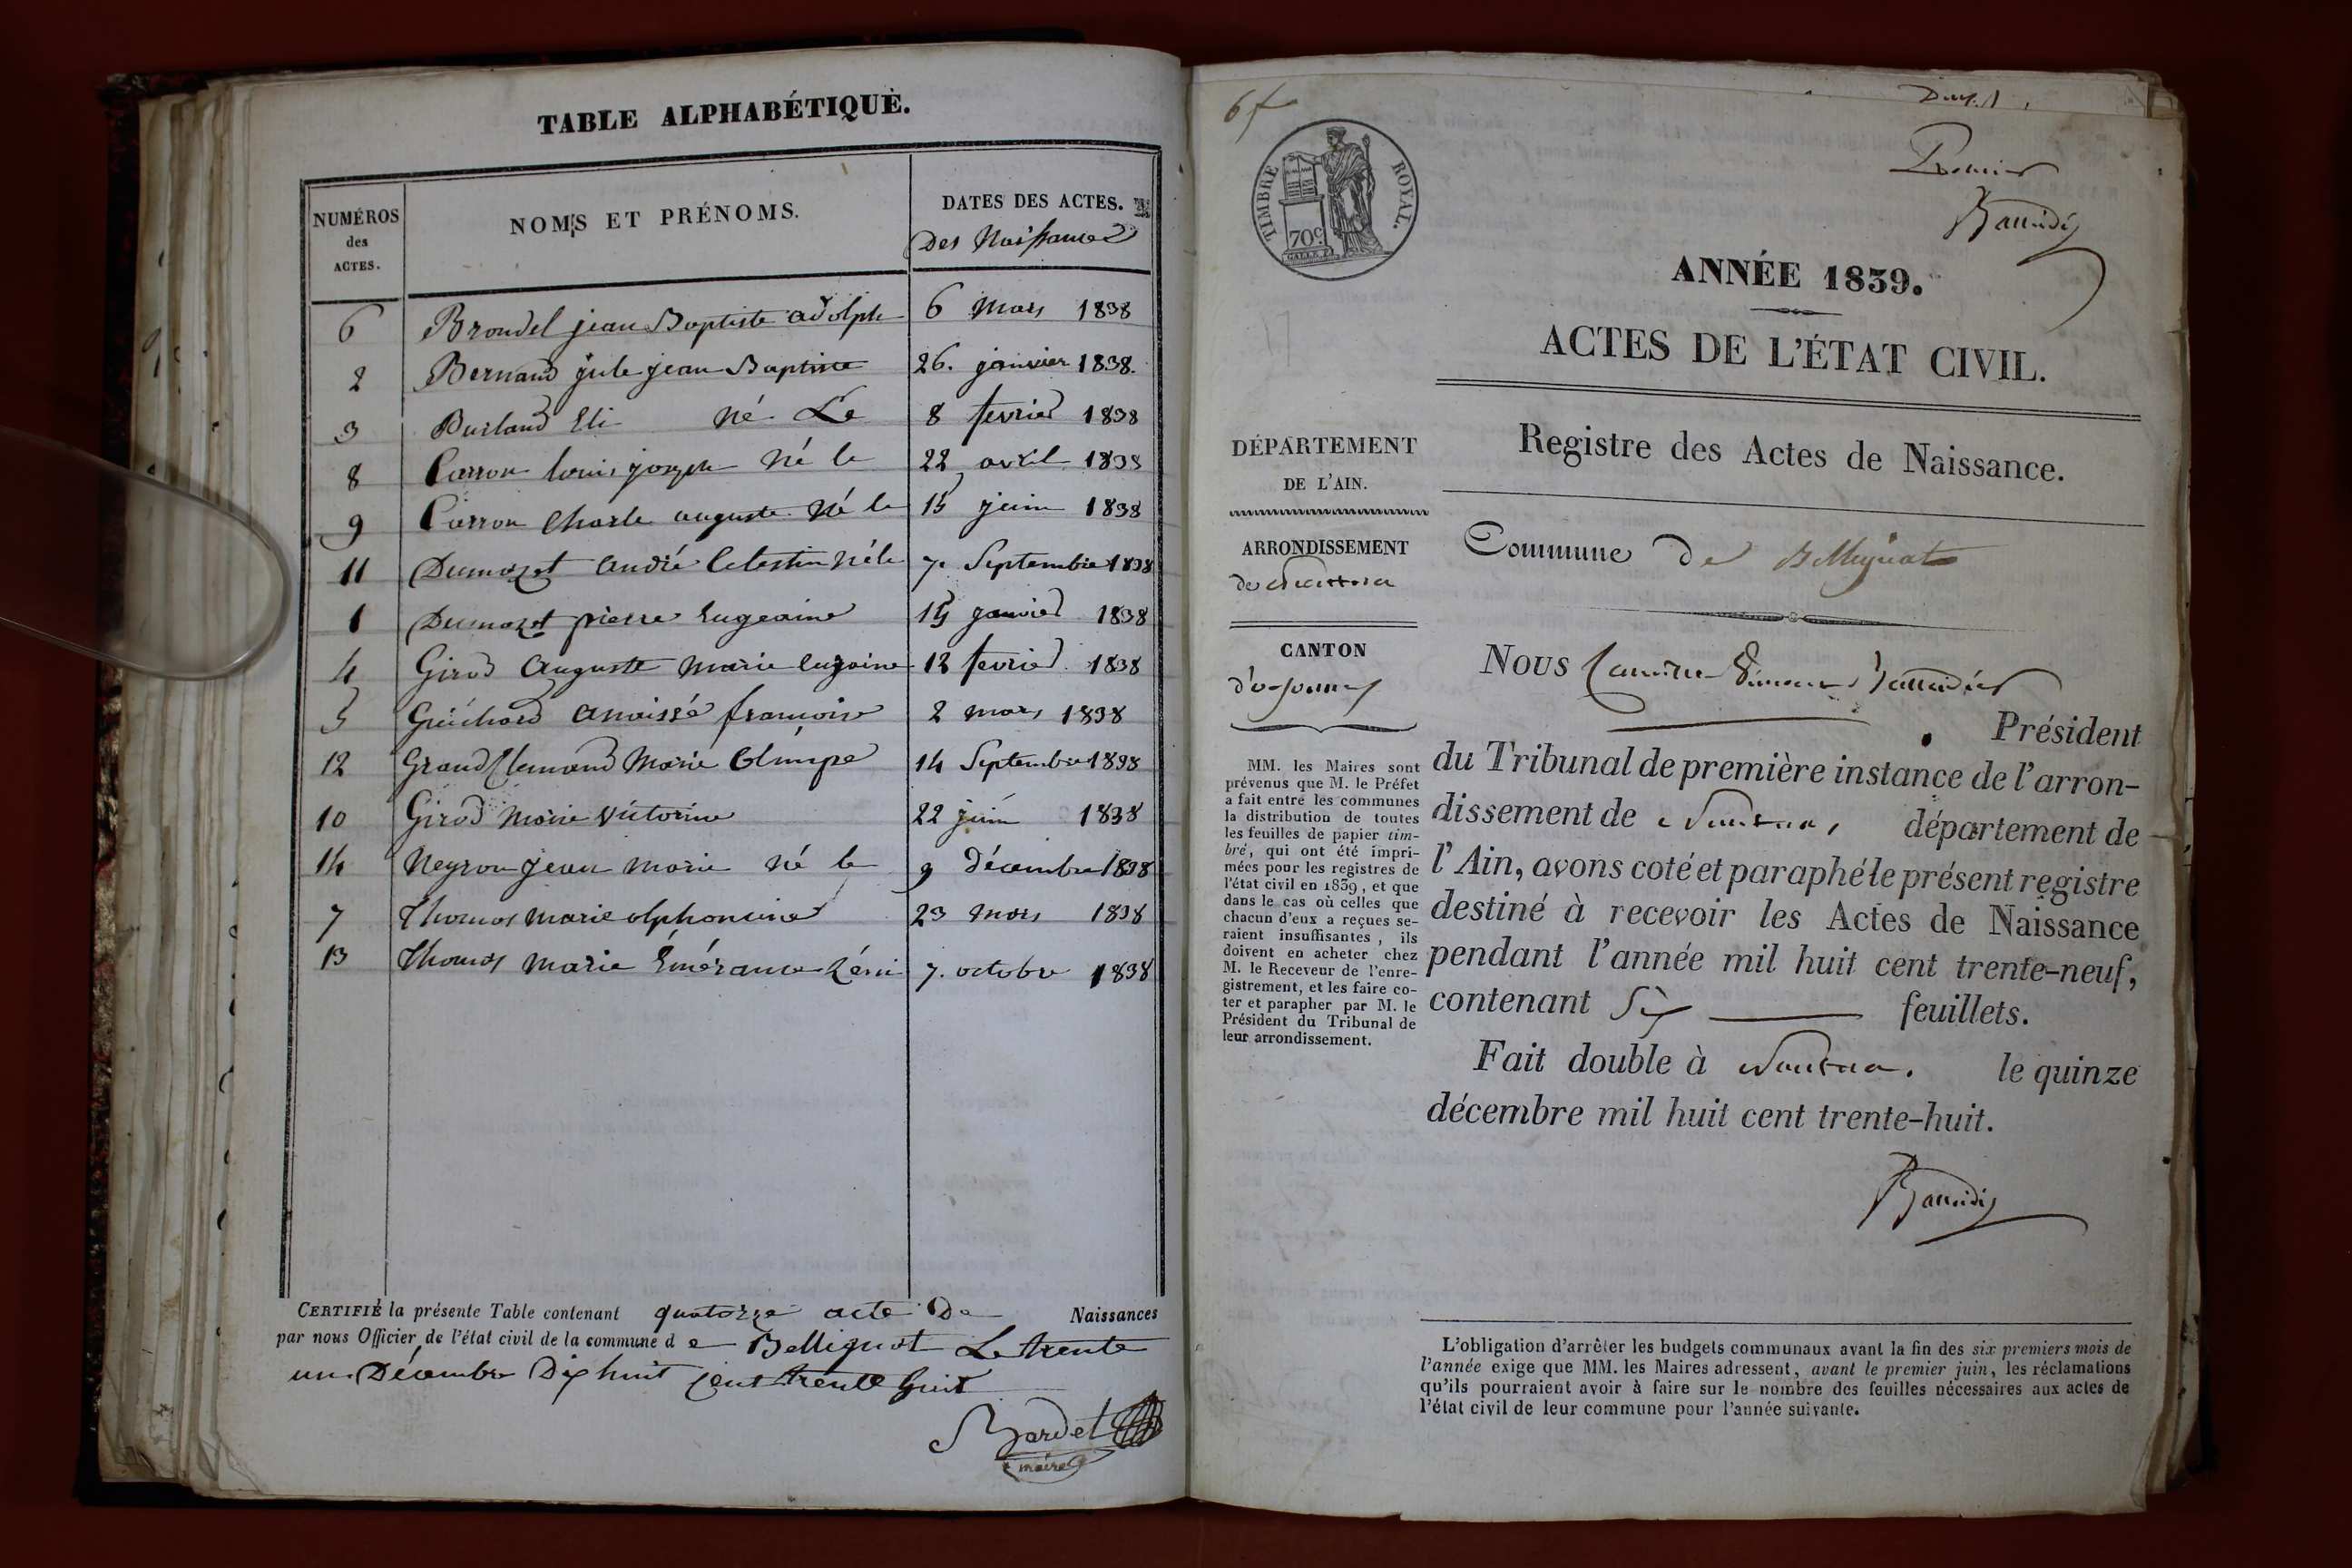 TABLE ALPHABÉTIQUE.
NUMÉROS des ACTES.
NOMS ET PRÉNOMS.
DATES DES ACTES.
Des Naissances
6 Brondel jean Baptiste adolph 6 mars 1838
2 Bernand jule jean Baptiste 26. janvier 1838.
3 Burland Eli né Le 8 fevrier 1838
8 Carron louis joseph né le 22 avril 1838
9 Carron Charle auguste né le 15 juin 1838
11 Dumozet andré Celestin né le 7. Septembre 1838
1 Dumozet pierre Eugeaine 15 janvier 1838
4 Girod auguste marie eugaine 12 fevrier 1838
5 Guichard anaissé francoise 2 mars 1838
12 Grand Clemand Marie Olimpe 14 Septembre 1838
10 Girod Marie Victorine 22 juin 1838
14 Neyron jean marie né le 9 décembre 1838
7 Thomas marie alphonsine 23 mars 1838
13 Thomas marie Émérance Zéni 7. octobre 1838
CERTIFIÉ la présente Table contenant quatorze acte De Naissances
par nous Officier de l'état civil de la commune d e Bellignat Le trente
un Décembre Dix huit cent trente huit
Bardet
maire
6 f
Premier
TIMBRE ROYAL.
70c
ANNÉE 1839.
ACTES DE L'ÉTAT CIVIL.
DÉPARTEMENT
DE L'AIN.
ARRONDISSEMENT
de Nantua
CANTON
d'oyonnax
MM. les Maires sont
prévenus que M. le Préfet
a fait entre les communes
la distribution de toutes
les feuilles de papier tim-
bré, qui ont été impri-
mées pour les registres de
l'état civil en 1839, et que
dans le cas où celles que
chacun d'eux a reçues se-
raient insuffisantes, ils
doivent en acheter chez
M. le Receveur de l'enre-
gistrement, et les faire co-
ter et parapher par M. le
Président du Tribunal de
leur arrondissement.
Registre des Actes de Naissance.
Commune De Bellignat
Nous
Président
du Tribunal de première instance de l'arron-
dissement de Nantua, département de
l'Ain, avons coté et paraphé le présent registre
destiné à recevoir les Actes de Naissance
pendant l'année mil huit cent trente-neuf,
contenant Six feuillets.
Fait double à Nantua. le quinze
décembre mil huit cent trente-huit.
L'obligation d'arrêter les budgets communaux avant la fin des six premiers mois de
l'année exige que MM. les Maires adressent, avant le premier juin, les réclamations
qu'ils pourraient avoir à faire sur le nombre des feuilles nécessaires aux actes de
l'état civil de leur commune pour l'année suivante.